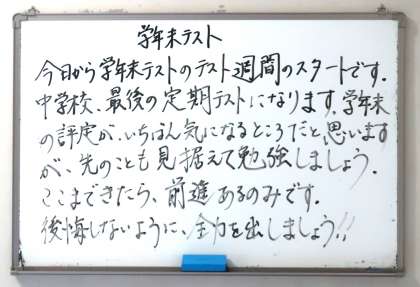 学年末テスト
今日から学年末テストのテスト週間のスタートです.
中学校、最後の定期テストになります.学年末
の評定が、いちばん気になるところだと思います
が、先のことも見据えて勉強しましょう.
ここまできたら、前進あるのみです.
後悔しないように、全力を出しましょう!!